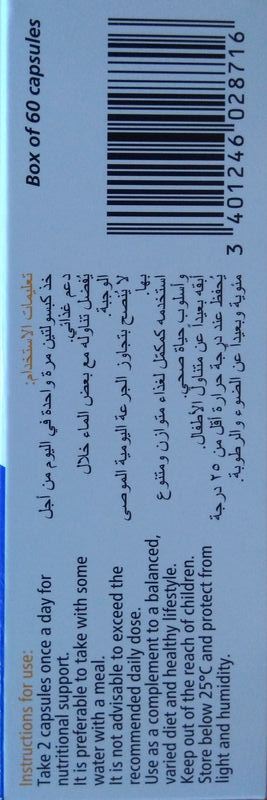 Instructions for use:
Take 2 capsules once a day for
nutritional support.
It is preferable to take with some
water with a meal.
It is not advisable to exceed the
recommended daily dose.
Use as a complement to a balanced,
varied diet and healthy lifestyle.
Keep out of the reach of children.
Store below 25°C and protect from
light and humidity.
تعليمات الاستخدام:
خذ كبسولتين مرة واحدة في اليوم من أجل
دعم غذائي.
يُفضل تناوله مع بعض الماء خلال
الوجبة.
لا يُنصح بتجاوز الجرعة اليومية الموصى
بها.
استخدمه كمكمّل لغذاء متوازن ومتنوع
وأسلوب حياة صحي.
إبقه بعيداً عن متناول الأطفال.
يُحفظ عند درجة حرارة أقل من ٢٥ درجة
مئوية وبعيدا عن الضوء والرطوبة.
Box of 60 capsules
3 401246 028716